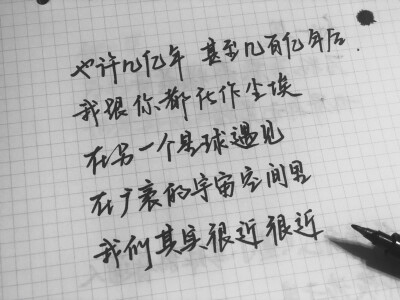 也许几亿年 甚至几百亿年后.
我跟你都化作尘埃
在另一个星球遇见
在广袤的宇宙空间里
我们其实很近很近